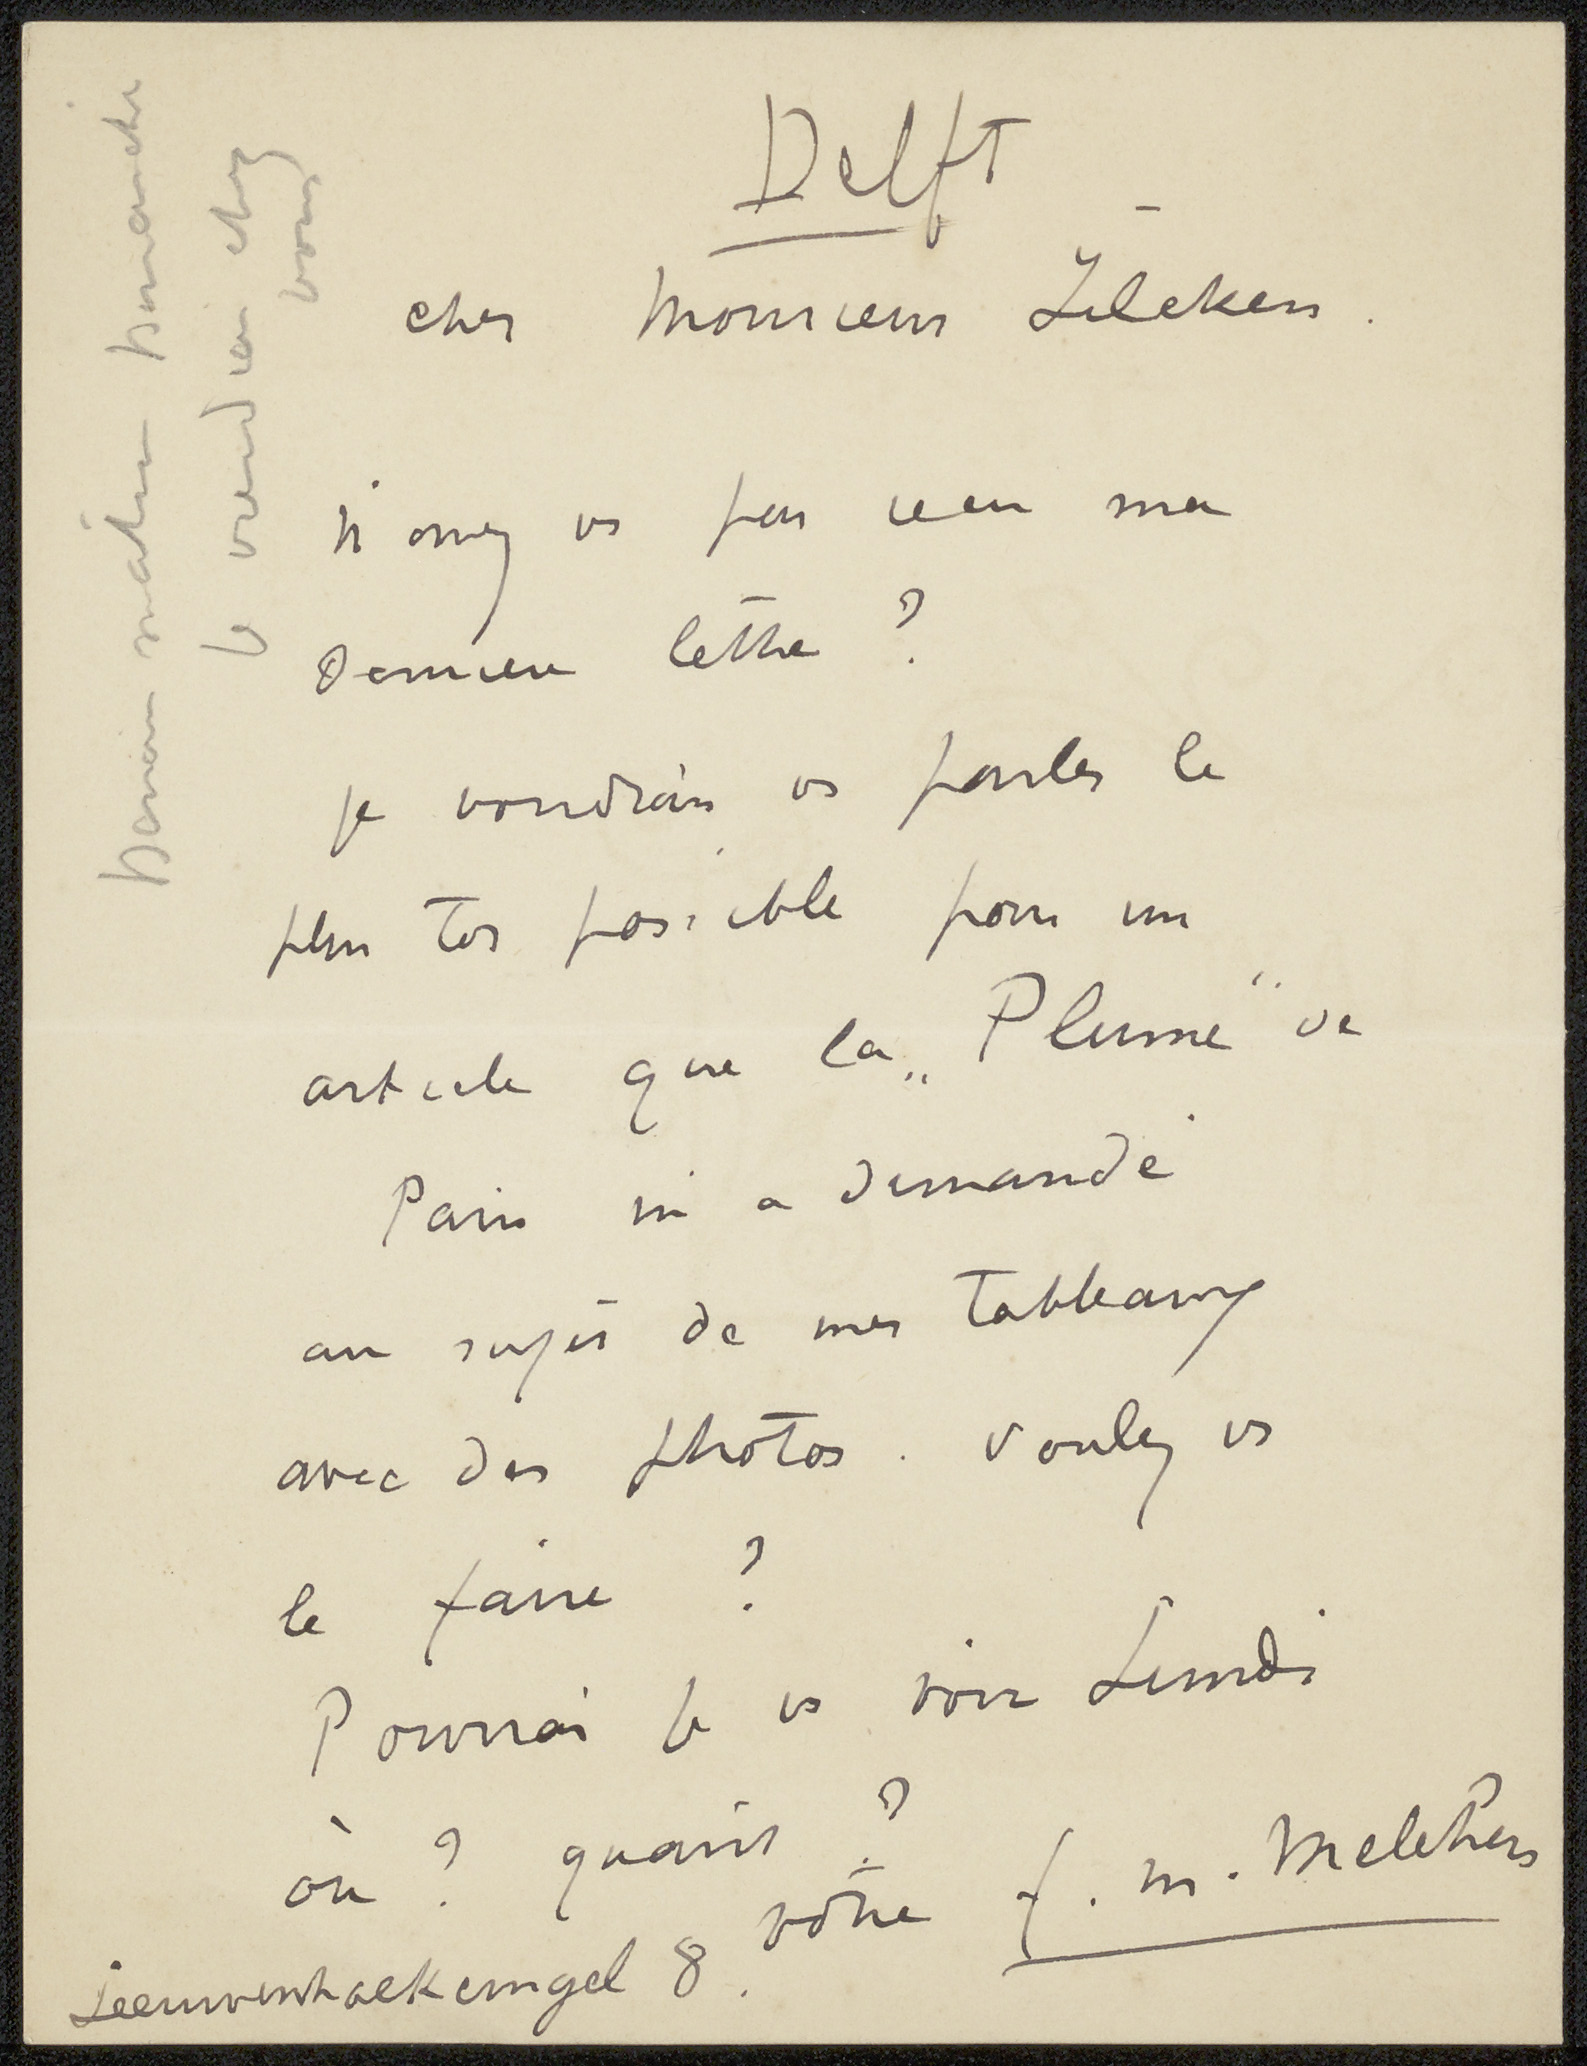 Delft
cher Monsieur Zilcken.
N'avez vs pas recu ma
derniere lettre ?
je voudrais vs parler le
plus tos possible pour un
article que la „Plume" de
Paris m'a demandé
au sujet de mes tableaux
avec des photos. voulez vs
le faire ?
Pourrai je vs voir Lundi
où ? quant ?
votre f. m. Melchers
Leeuwenhoeksingel 8.
Demain matin Dimanche
je viendrai chez
vous